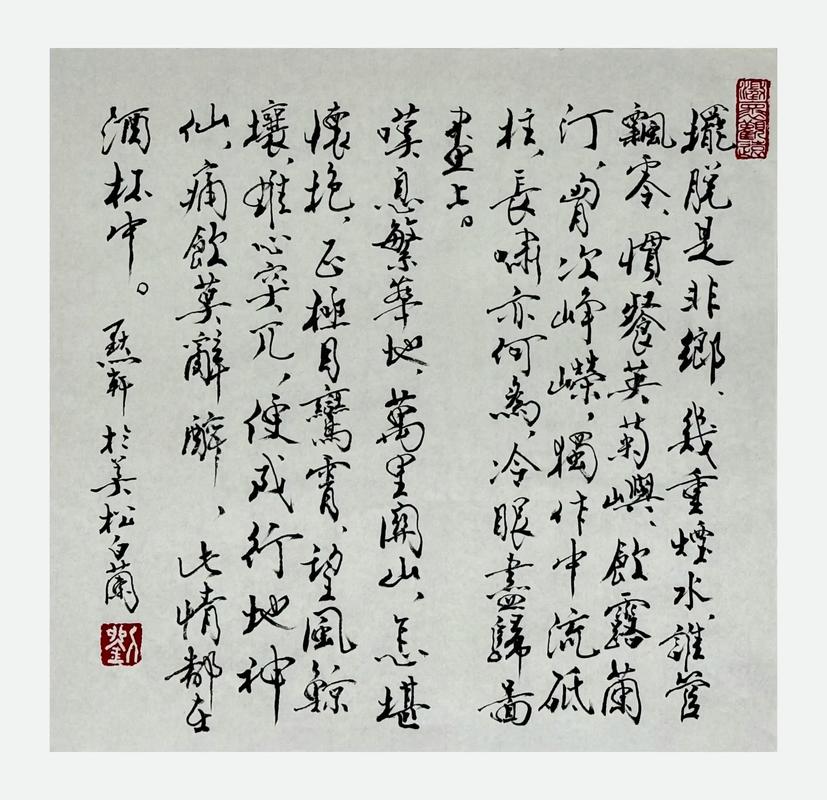 擺脫是非鄉、幾重煙水、誰管
飄零、慣餐英菊嶼、飲露蘭
汀、胷次崢嶸，獨作中流砥
柱、長嘯亦何為、冷眼盡歸圖
畫上。
嘆息繁華地、萬里關山、怎堪
懷抱、正極目鸞霄、望風鯨
壤、雄心突兀，便成行地神
仙、痛飲莫辭醉，此情都在
酒杯中。默軒於美松白蘭
劉